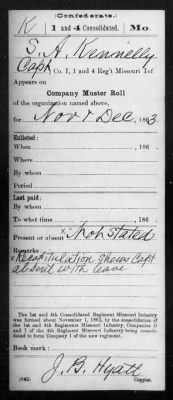 (Confederate.)
K 1 and 4 Consolidated. Mo.
S. A. Kennelly
Capt, Co. I, 1 and 4 Reg't Missouri Inf
Appears on
Company Muster Roll
of the organization named above,
for Nov & Dec, 1863
Enlisted:
When , 186 .
Where
By whom
Period
Last paid:
By whom
To what time , 186 .
Present or absent x Not stated
x Recapitulation shows Capt
absent with leave
The 1st and 4th Consolidated Regiment Missouri Infantry
was formed about November 1, 1862, by the consolidation of
the 1st and 4th Regiments Missouri Infantry, Companies
and I of the 4th Regiment Missouri Infantry being consoli-
dated to form Company I of the new regiment.
Book mark:
J. B. Hyatt
(642) Copyist.